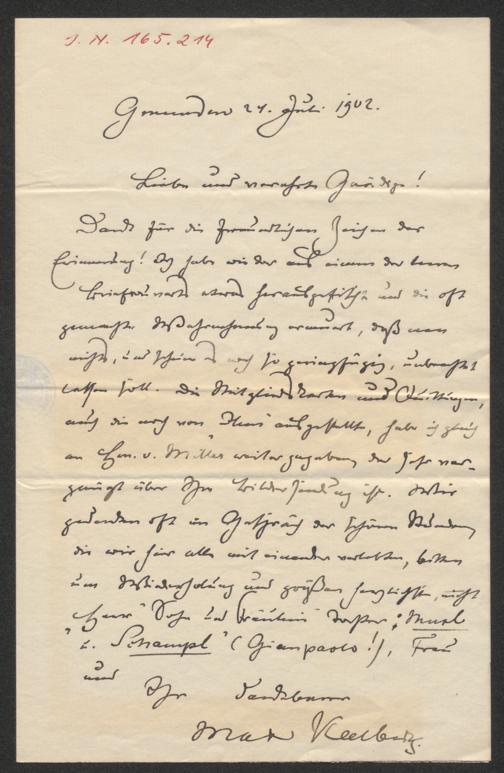 J. N. 165.214
Gmunden 24. Juli 1902.
Liebe und verehrte Gnädige!
Dank für die freundlichen Zeichen der
Erinnerung! Ich habe wieder aus einem der
Briefcouverts etwas herausgefischt und die oft
gemachte Wahrnehmung erneuert, daß man
nichts, und schein es noch so geringfügig, unbeachtet
lassen soll. Die Mitgliedskarten und Quittungen,
auch die noch von Ihnen ausgestellte, habe ich gleich
an Hrn. v. Miller weitergegeben, der sehr ver-
gnügt über Ihre Bildersendung ist. Wir
gedenken oft im Gespräch der schönen Stunden,
die wir hier alle mit einander verlebten, bitten
um Wiederholung und grüßen herzlichst, nicht
"Herrn" Sohn und "Fräulein" Tochter:
u. Schampl" (Gianpaolo!), Frau
und
Ihr dankbarer
Max Kalbeck.